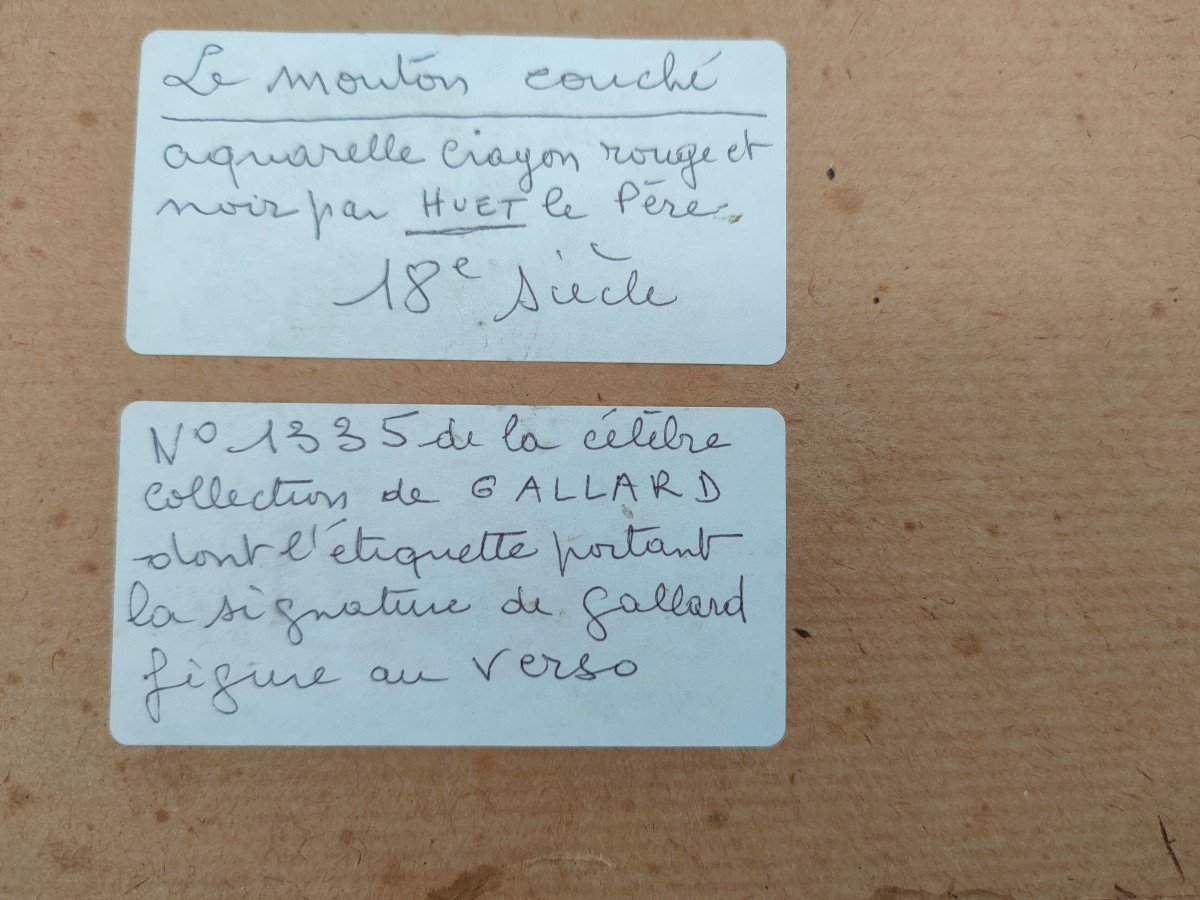 Le mouton couché
aquarelle crayon rouge et
noir par HUET le Père
18e siècle
No 1335 de la célèbre
collection de GALLARD
dont l'étiquette portant
la signature de Gallard
figure au verso